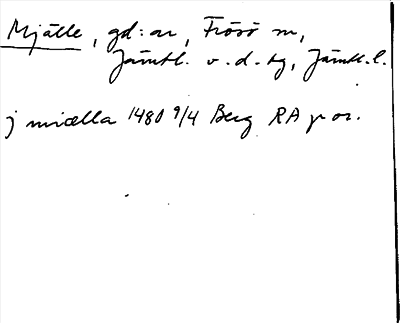 Mjälle, gd:ar, Frösö sn,
Jämtl. v. d. tg, Jämtl. l.
j miælla 1480 9/4 Berg RA p or.